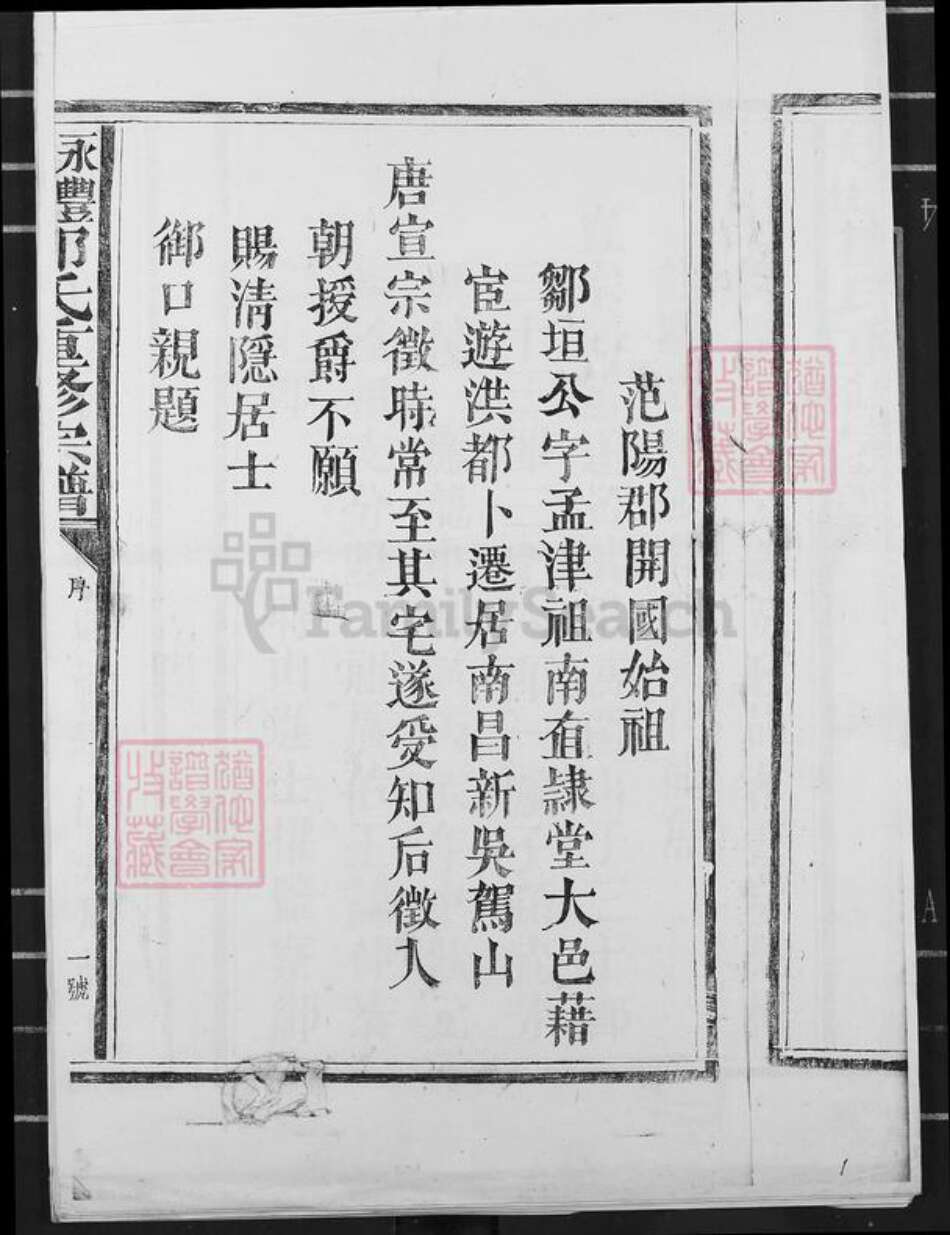 范陽郡開國始祖
鄒垣公字孟津祖南直隷堂大邑藉
宦遊洪都卜遷居南昌新吳駕山
唐宣宗徵時常至其宅遂受知后徵入
朝授爵不願
賜淸隠居士
御口親題
永豐鄒氏重修宗譜
序
一號
FamilySearch
譜學會
收藏
4
A
1